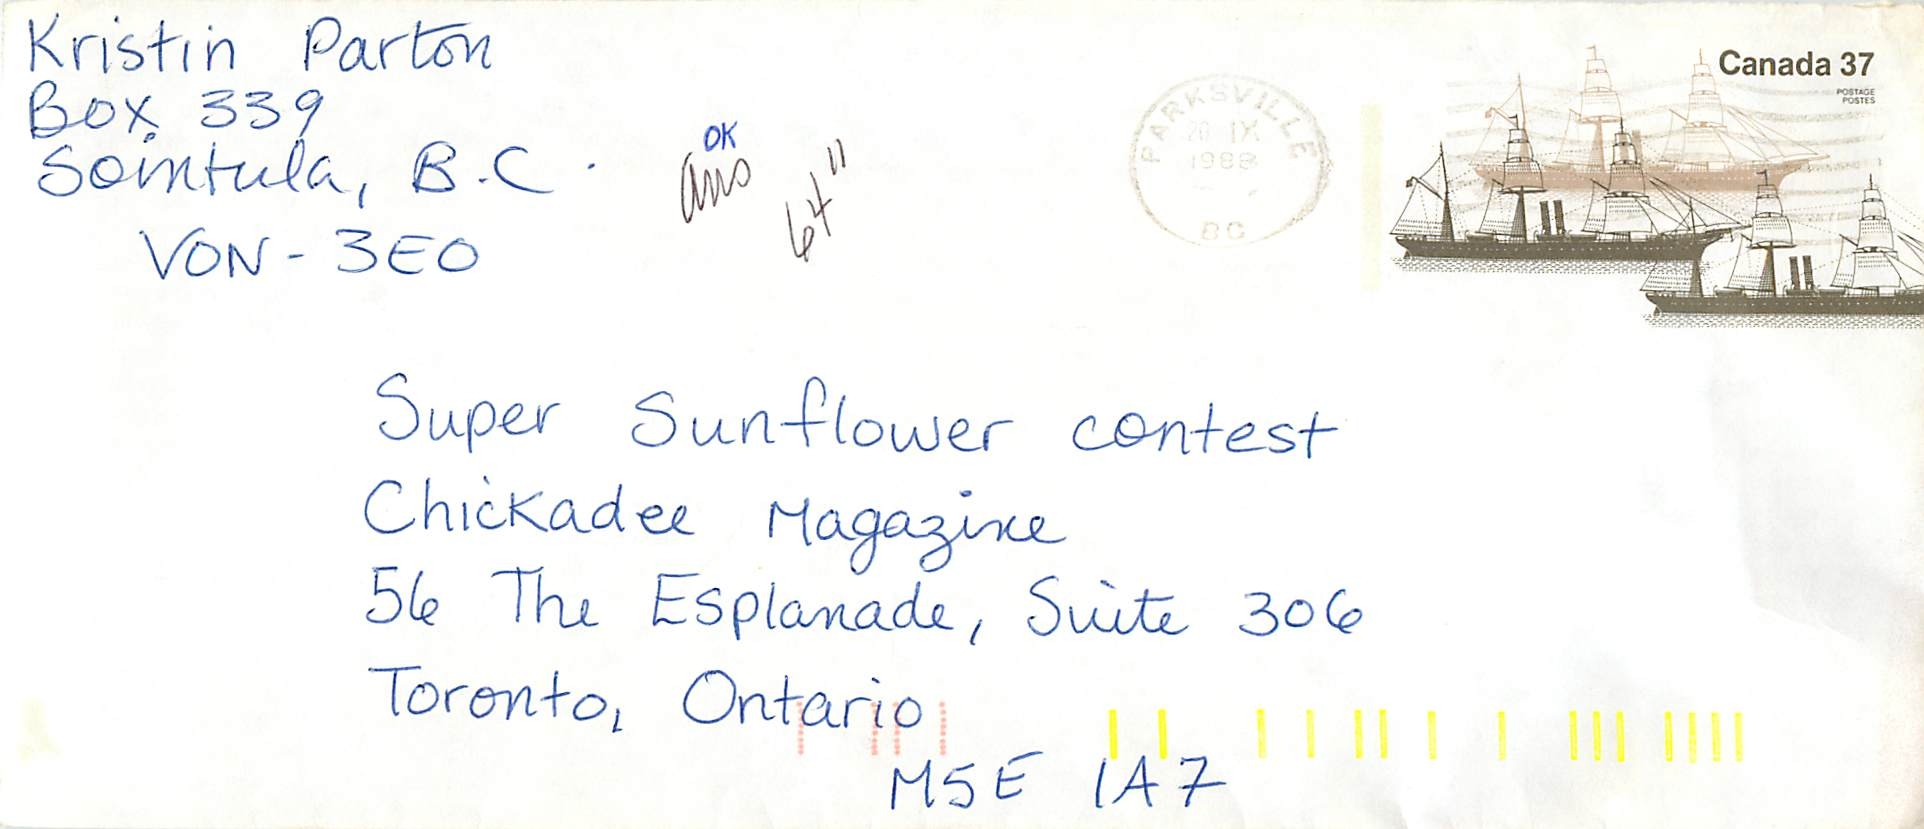 Kristin Parton
Box 339
Sointula, B.C.
VON - 3EO
OK
ans
64"
PARKSVILLE
20 IX
1988
BC
Canada 37
POSTAGE
POSTES
Super Sunflower contest
Chickadee Magazine
56 The Esplanade, Suite 306
Toronto, Ontario
M5E 1A7